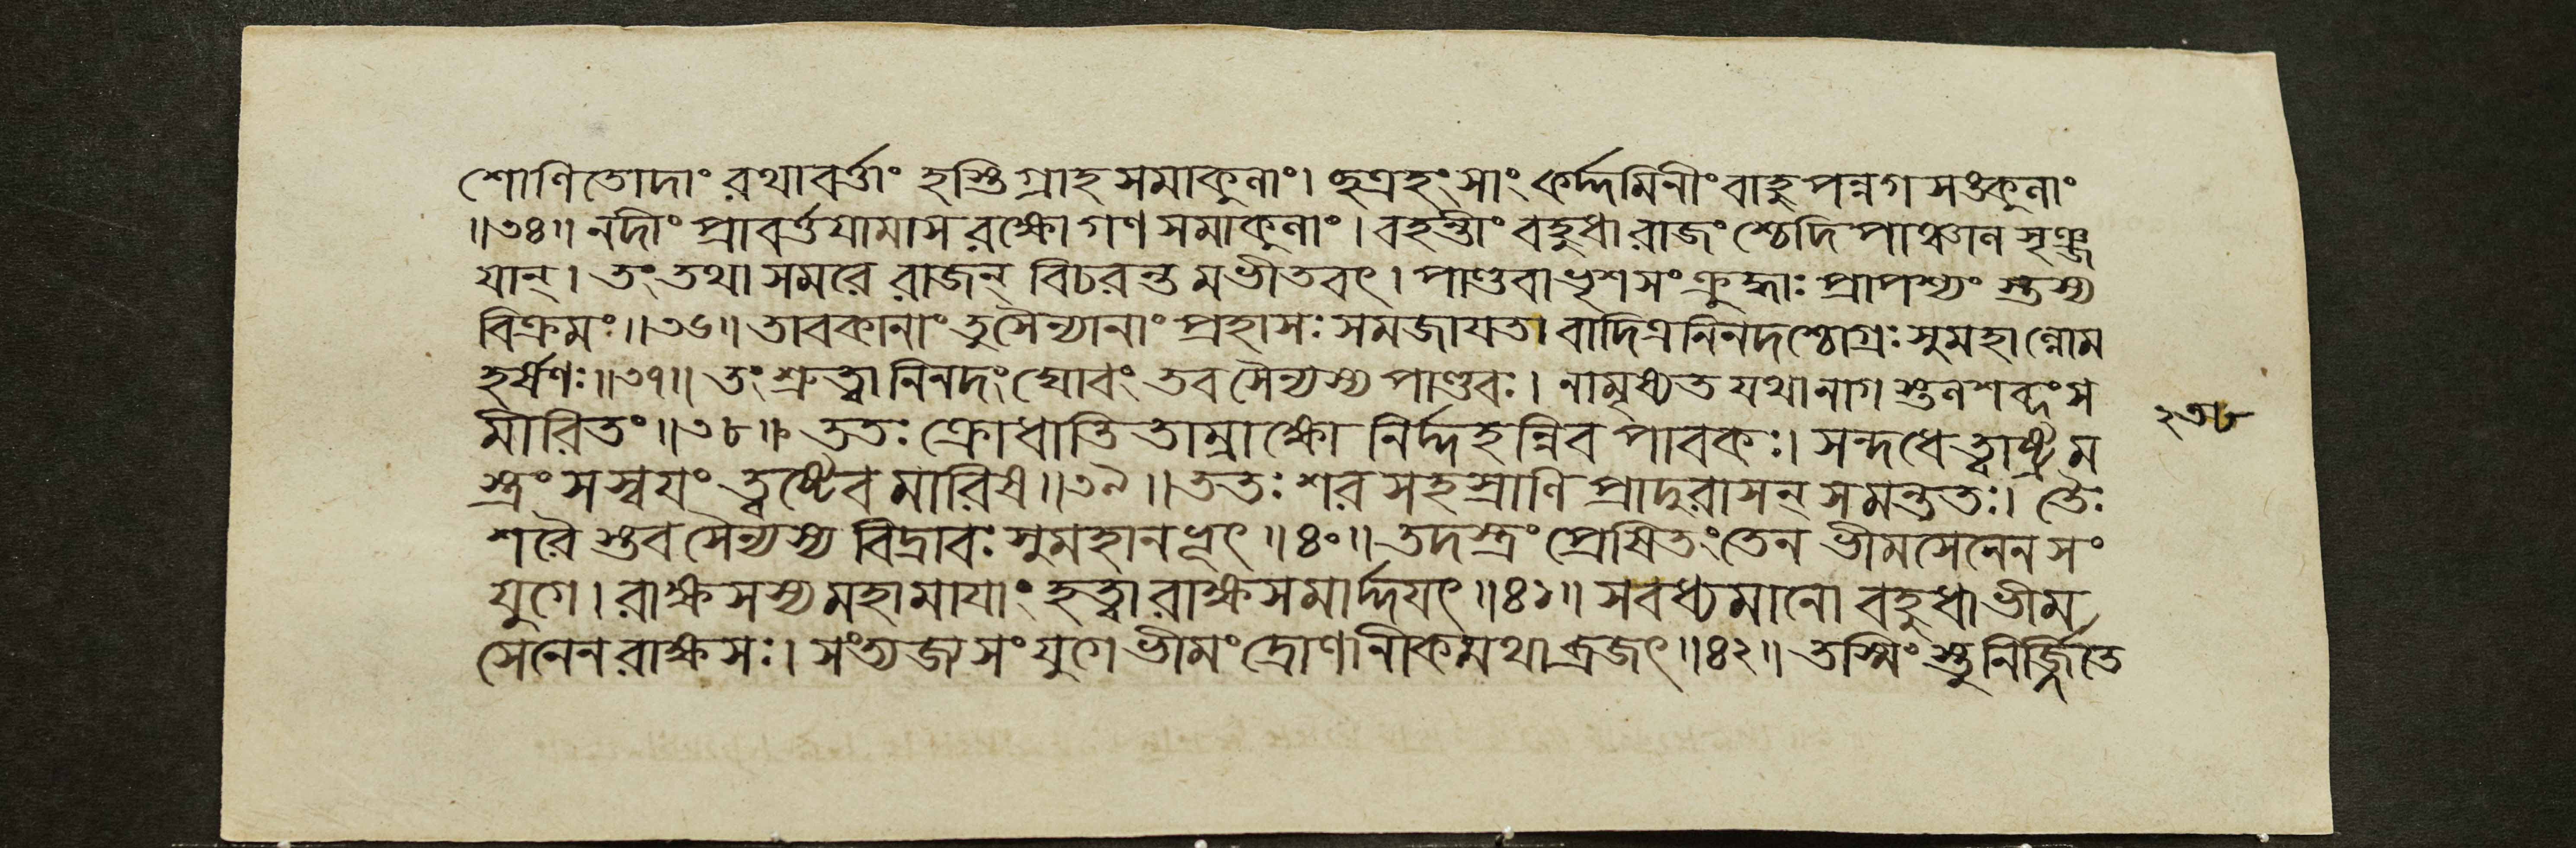 শোণিতোদাং রথাবর্ত্তাং হস্তিগ্রাহসমাকুলাং। ছত্রহংসাং কর্দ্দমিনীং বাহুপন্নগসঙ্কুলাং
॥৩৪॥ নদীং প্রাবর্ত্তয়ামাস রক্ষোগণসমাকুলাং। বহন্তীং বহুধা রাজংশ্চেদিপাঞ্চালসৃঞ্জ
য়ান্। তং তথা সমরে রাজন্ বিচরন্তমভীতবৎ। পাণ্ডবা ভৃশসংক্রুদ্ধাঃ প্রাপশ্যংস্তস্য
বিক্রমং॥৩৬॥ তাবকানাং তু সৈন্যানাং প্রহাসঃ সমজায়ত। বাদিত্রনিনদশ্চোগ্রঃ সুমহাল্লোম
হর্ষণঃ॥৩৭॥ তং শ্রুত্বা নিনদং ঘোরং তব সৈন্যস্য পাণ্ডবঃ। নামৃষ্যত যথা নাগস্তলশব্দং স
মীরিতং॥৩৮॥ ততঃ ক্রোধাভিতাম্রাক্ষো নির্দ্দহন্নিব পাবকঃ। সন্দধে ত্বাষ্ট্রম
স্ত্রং স স্বয়ং ত্বষ্টেব মারিষ॥৩৯॥ ততঃ শরসহস্রাণি প্রাদুরাসন্ সমন্ততঃ। তৈঃ
শরৈস্তব সৈন্যস্য বিদ্রাবঃ সুমহানভূৎ॥৪০॥ তদস্ত্রং প্রেষিতং তেন ভীমসেনেন সং
যুগে। রাক্ষসস্য মহামায়াং হত্বা রাক্ষসমার্দ্দয়ৎ॥৪১॥ স বধ্যমানো বহুধা ভীম
সেনেন রাক্ষসঃ। সংত্যজ্য সংযুগে ভীমং দ্রোণানীকমথাদ্রজৎ॥৪২॥ তস্মিংস্তু নির্জ্জিতে
২৩৮